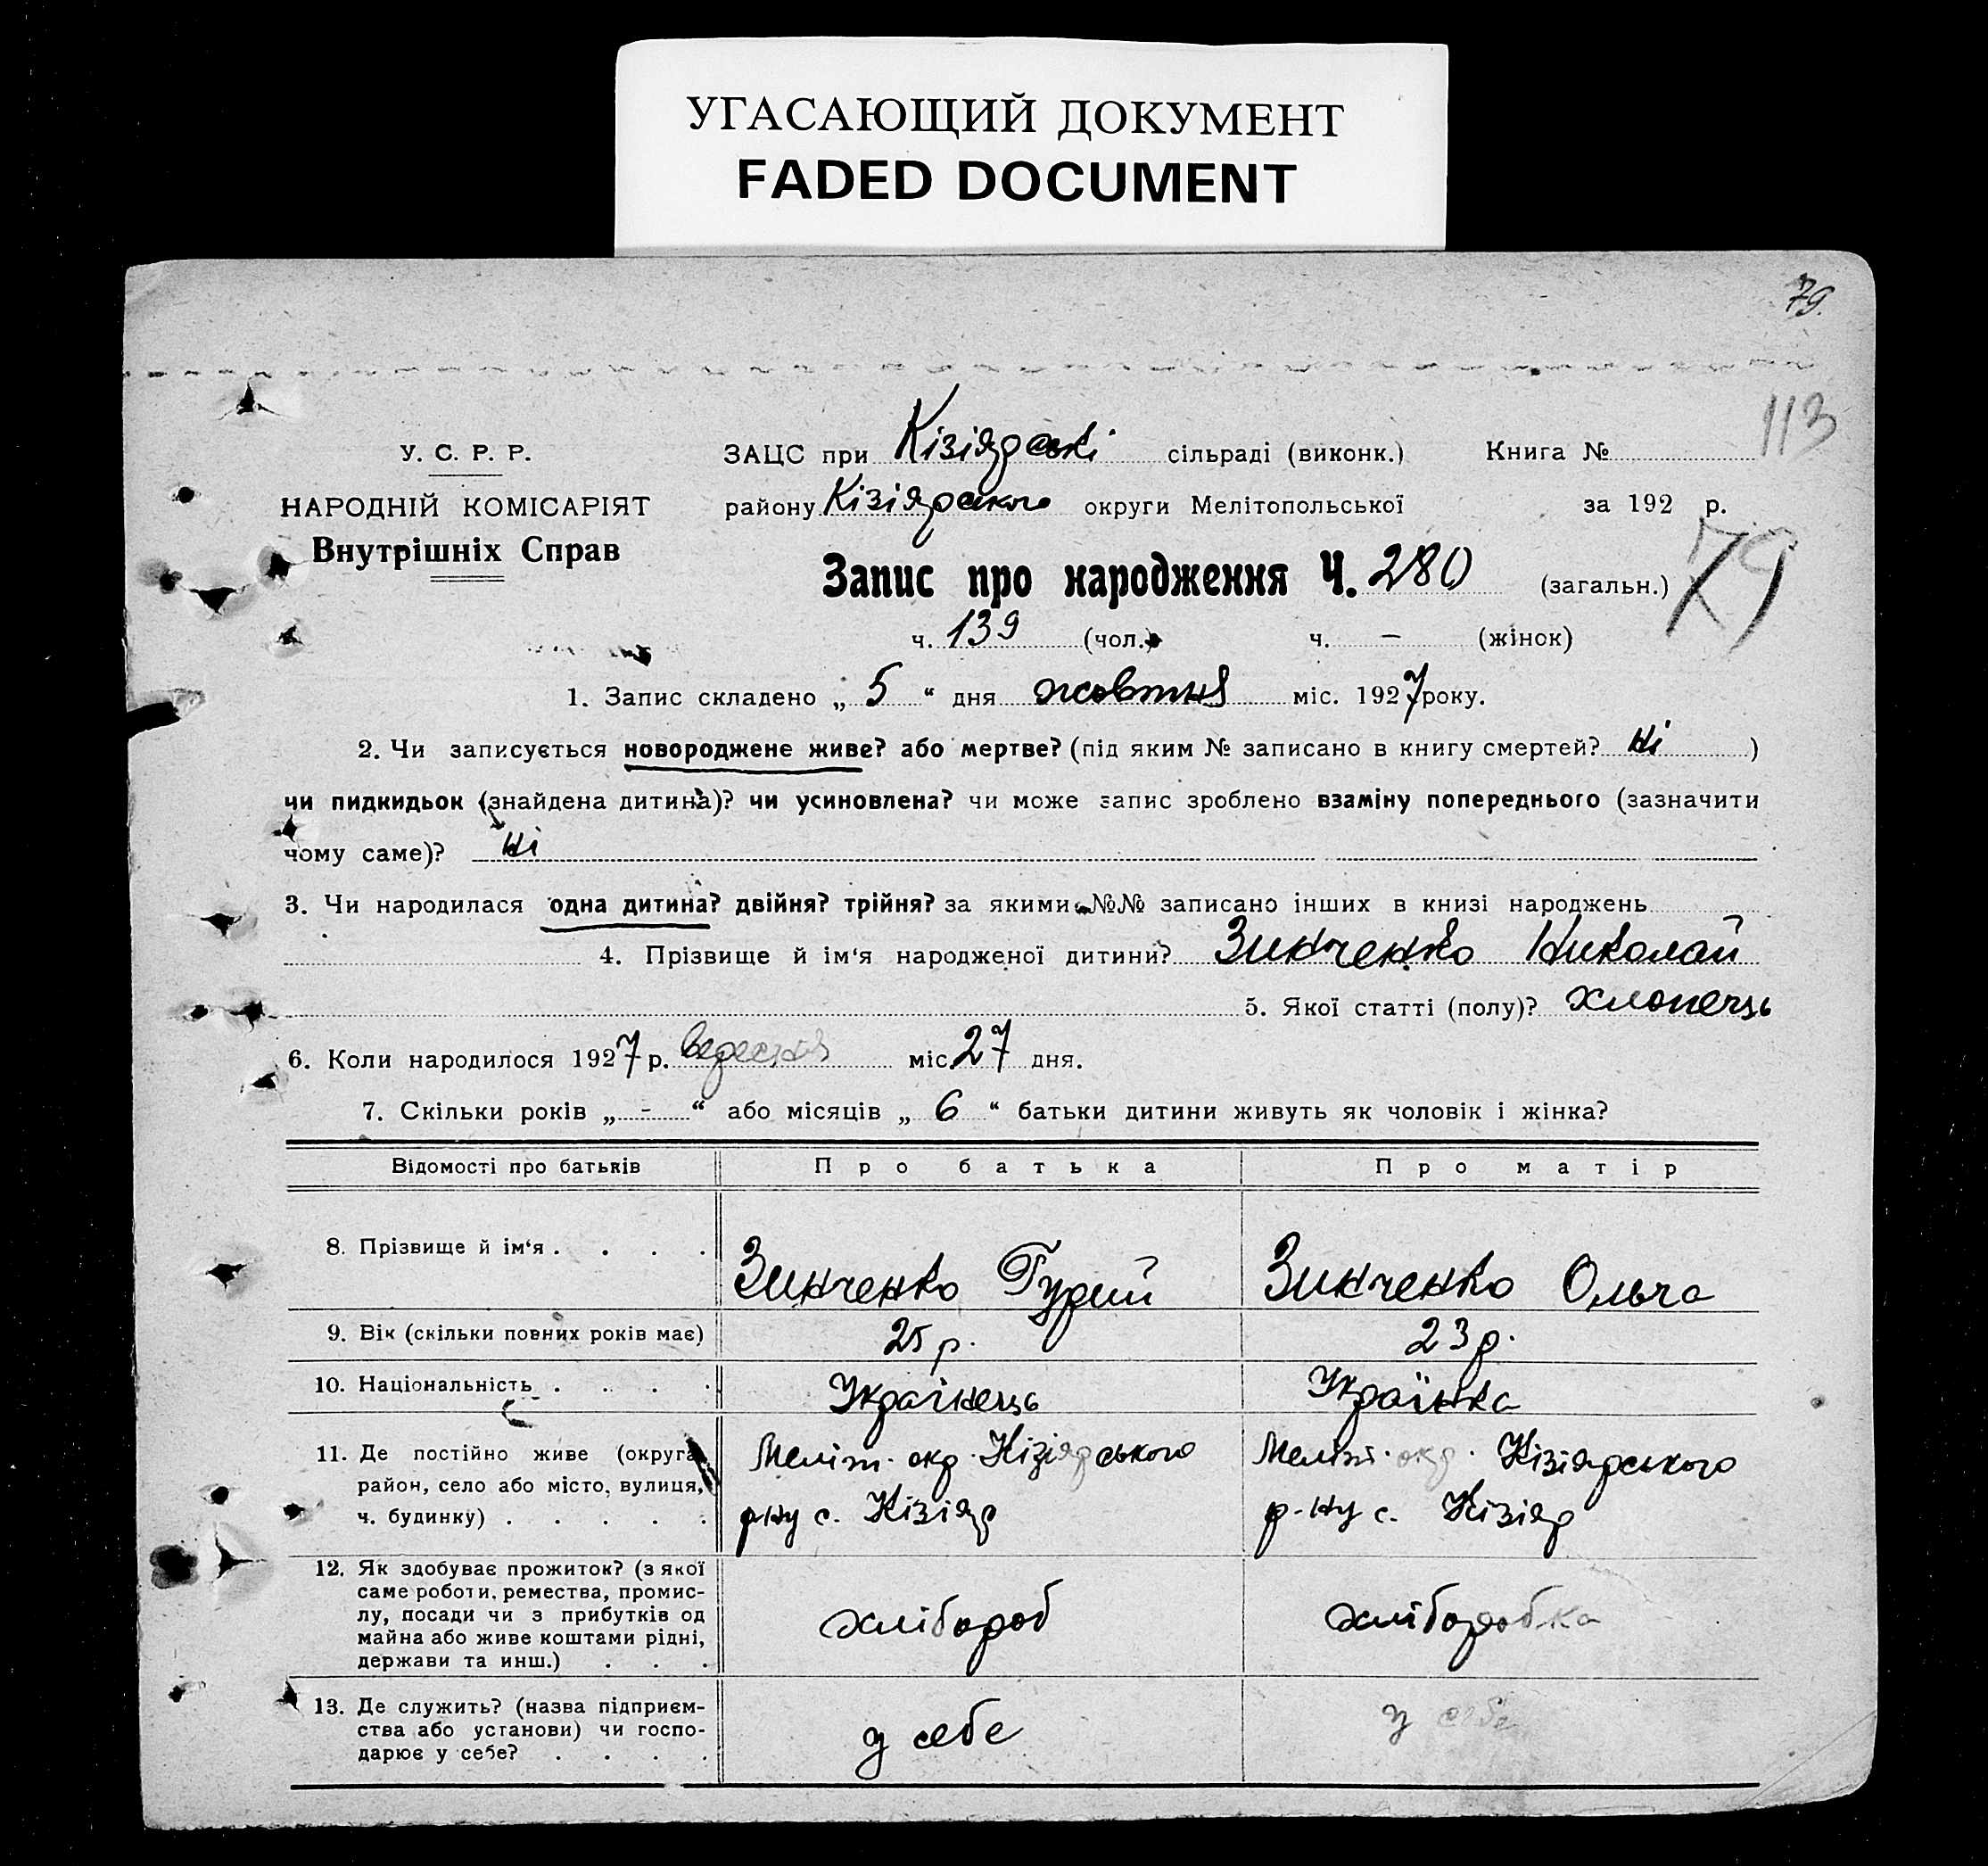 УГАСАЮЩИЙ ДОКУМЕНТ
FADED DOCUMENT
79.
113
У. С. Р. Р.
НАРОДНІЙ КОМІСАРІЯТ
Внутрішніх Справ
ЗАЦС при Кізіярські сільраді (виконк.) Книга №
району Кізіярського округи Мелітопольської за 192 р.
Запис про народження Ч. 280 (загальн.) 79
ч. 139 (чол.) ч. — (жінок)
1. Запис складено „ 5 “ дня жовтня міс. 1927 року.
2. Чи записується новороджене живе? або мертве? (під яким № записано в книгу смертей? ні )
чи пидкидьок (знайдена дитина)? чи усиновлена? чи може запис зроблено взаміну попереднього (зазначити
чому саме)? ні
3. Чи народилася одна дитина? двійня? трійня? за якими №№ записано інших в книзі народжень
4. Прізвище й ім‘я народженої дитини? Зинченко Николай
5. Якої статті (полу)? хлопець
6. Коли народилося 1927 р. вересня міс. 27 дня.
7. Скільки років „ - “ або місяців „ 6 “ батьки дитини живуть як чоловік і жінка?
Відомості про батьків Про батька Про матір
8. Прізвище й ім‘я . . . . Зинченко Гурий Зинченко Ольга
9. Вік (скільки повних років має) 25 р. 23 р.
10. Національність . . . . Українець Українка
11. Де постійно живе (округа,
район, село або місто, вулиця,
ч. будинку) . . . . .
Меліт. окр. Кізіярського
р-ну с. Кізіяр
Меліт. окр. Кізіярського
р-ну с. Кізіяр
12. Як здобуває прожиток? (з якої
саме роботи, ремества, промис-
лу, посади чи з прибутків од
майна або живе коштами рідні,
держави та инш.) . . .
хлібороб
хліборобка
13. Де служить? (назва підприєм-
ства або установи) чи госпо-
дарює у себе? . . . .
у себе
у себе